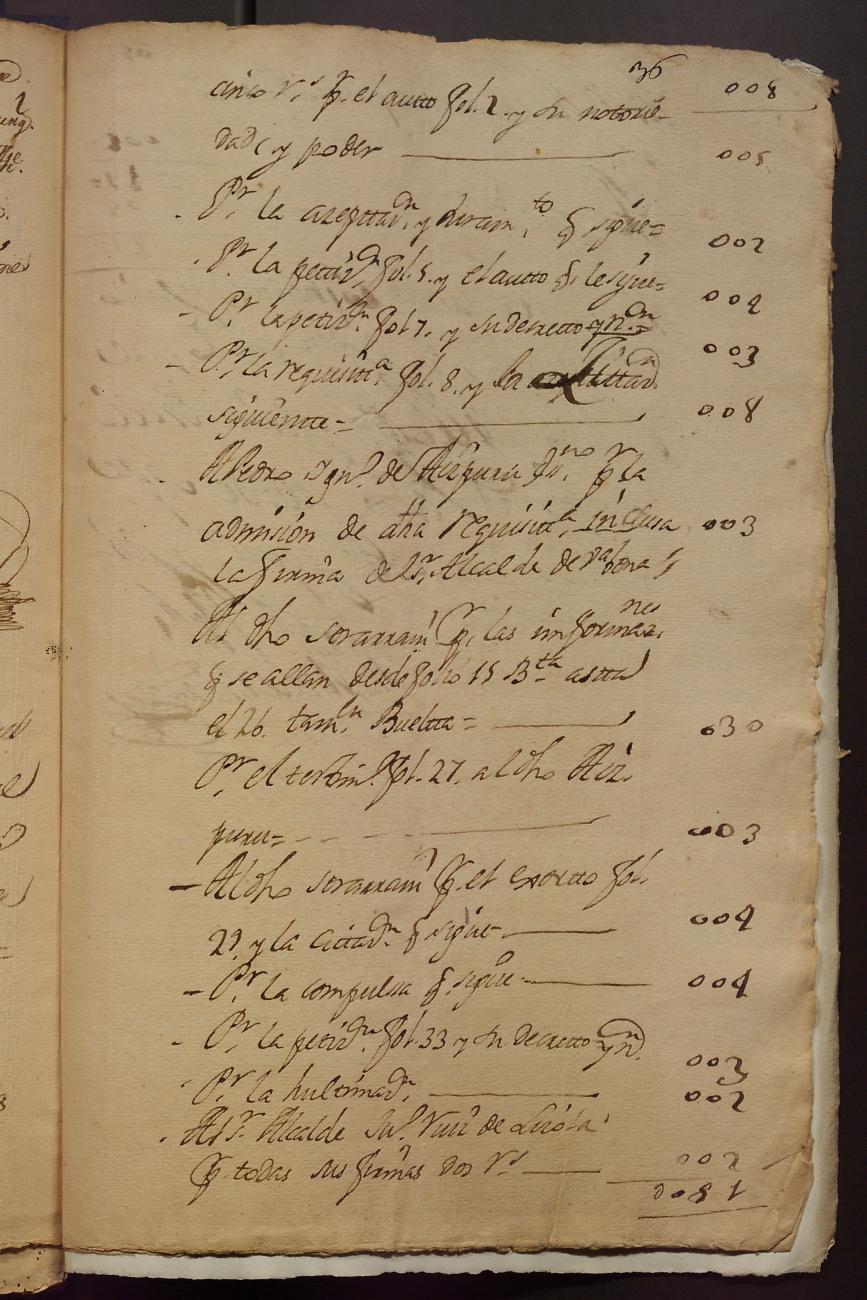 36
008
cinco r.s p.r el autto fol. 2. y su notorie-
dad, y poder 005
P.r la azeptaz.on y Juram.to q sigue= 002
P.r la petiz.on fol. 5. y el autto q. le sigue= 004
P.r la petiz.on fol 7. y su decretto y n.on= 003
P.r la requisitt.a fol. 8. y la
siguiente= 008
A Pedro Ign.o de Aizpuru s.no p.r la
admision de dha requisitt.a inclusa 003
la firma del s.r Alcalde de
Al dho sorarrain p.r las informaz.nes
q se allan desde folio 15 B.ta astta
el 26. tam.en Buelta= 030
P.r el testim.o fol. 27. al dho Aiz-
puru= 003
Al dho sorarrain p.r el exortto fol.
29. y la cittaz.on q sigue 004
P.r la compulsa q. sigue 004
P.r la petiz.on fol 33 y su decretto y n.on 003
P.r la hultimaz.on 002
Al s.r Alcalde Ju.o Ruiz de Luzuria.
p.r todas sus firmas dos r.s 002
0081